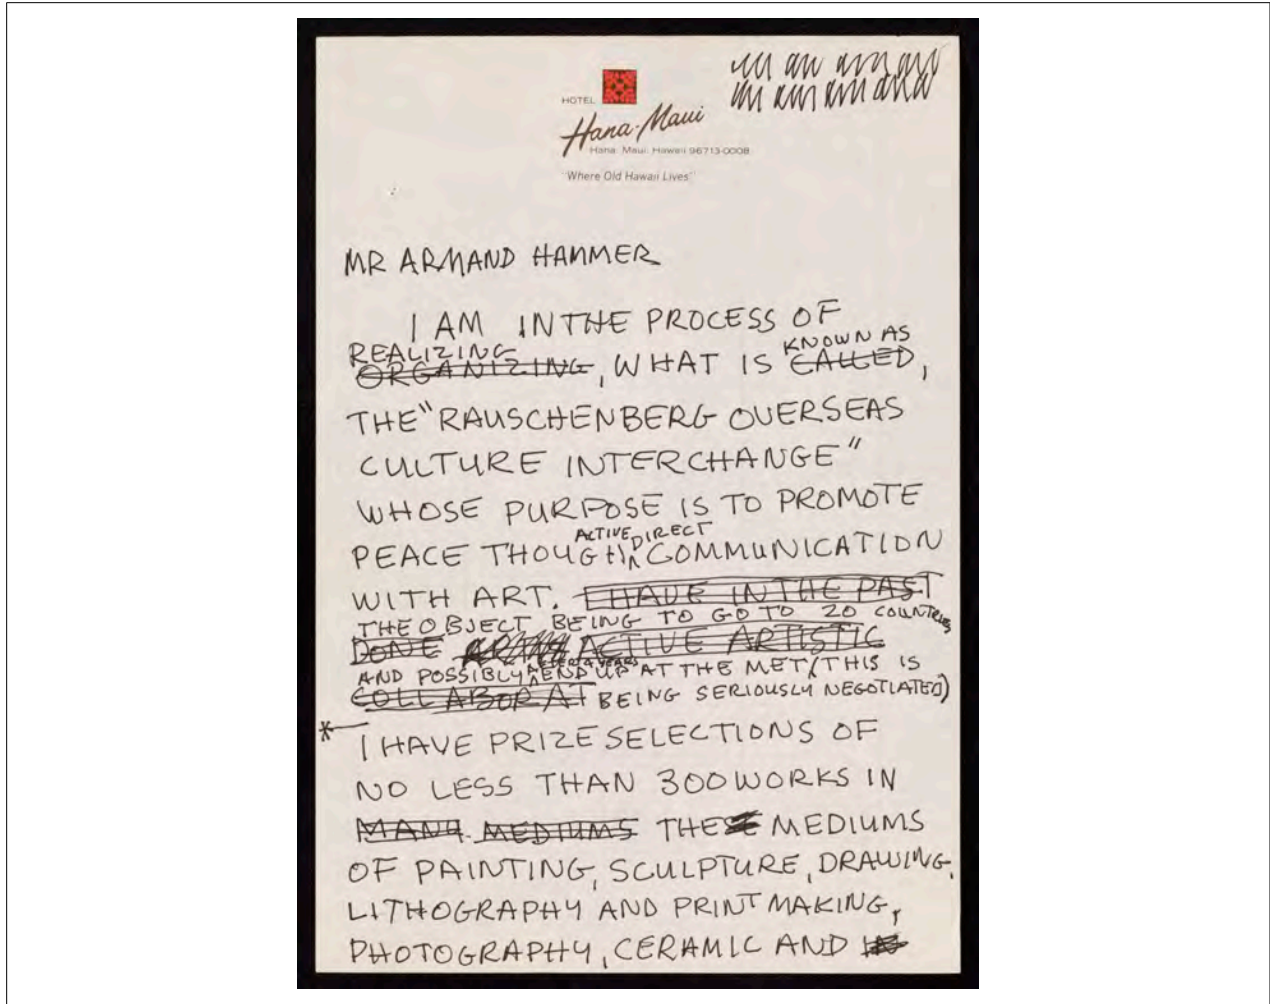 HOTEL
Hana-Maui
Hana, Maui, Hawaii 96713-0008
"Where Old Hawaii Lives"
MR ARMAND HAMMER
I AM IN THE PROCESS OF
REALIZING KNOWN AS
ORGANIZING, WHAT IS CALLED,
THE "RAUSCHENBERG OVERSEAS
CULTURE INTERCHANGE"
WHOSE PURPOSE IS TO PROMOTE
ACTIVE DIRECT
PEACE THOUGH COMMUNICATION
WITH ART. I HAVE IN THE PAST
THE OBJECT BEING TO GO TO 20 COUNTRIES
DONE ACTIVE ARTISTIC
AFTER 4 YEARS
AND POSSIBLY END UP AT THE MET (THIS IS
COLLABORAT BEING SERIOUSLY NEGOTIATED)
* I HAVE PRIZE SELECTIONS OF
NO LESS THAN 300 WORKS IN
MANY MEDIUMS THE MEDIUMS
OF PAINTING, SCULPTURE, DRAWING,
LITHOGRAPHY AND PRINT MAKING,
PHOTOGRAPHY, CERAMIC AND